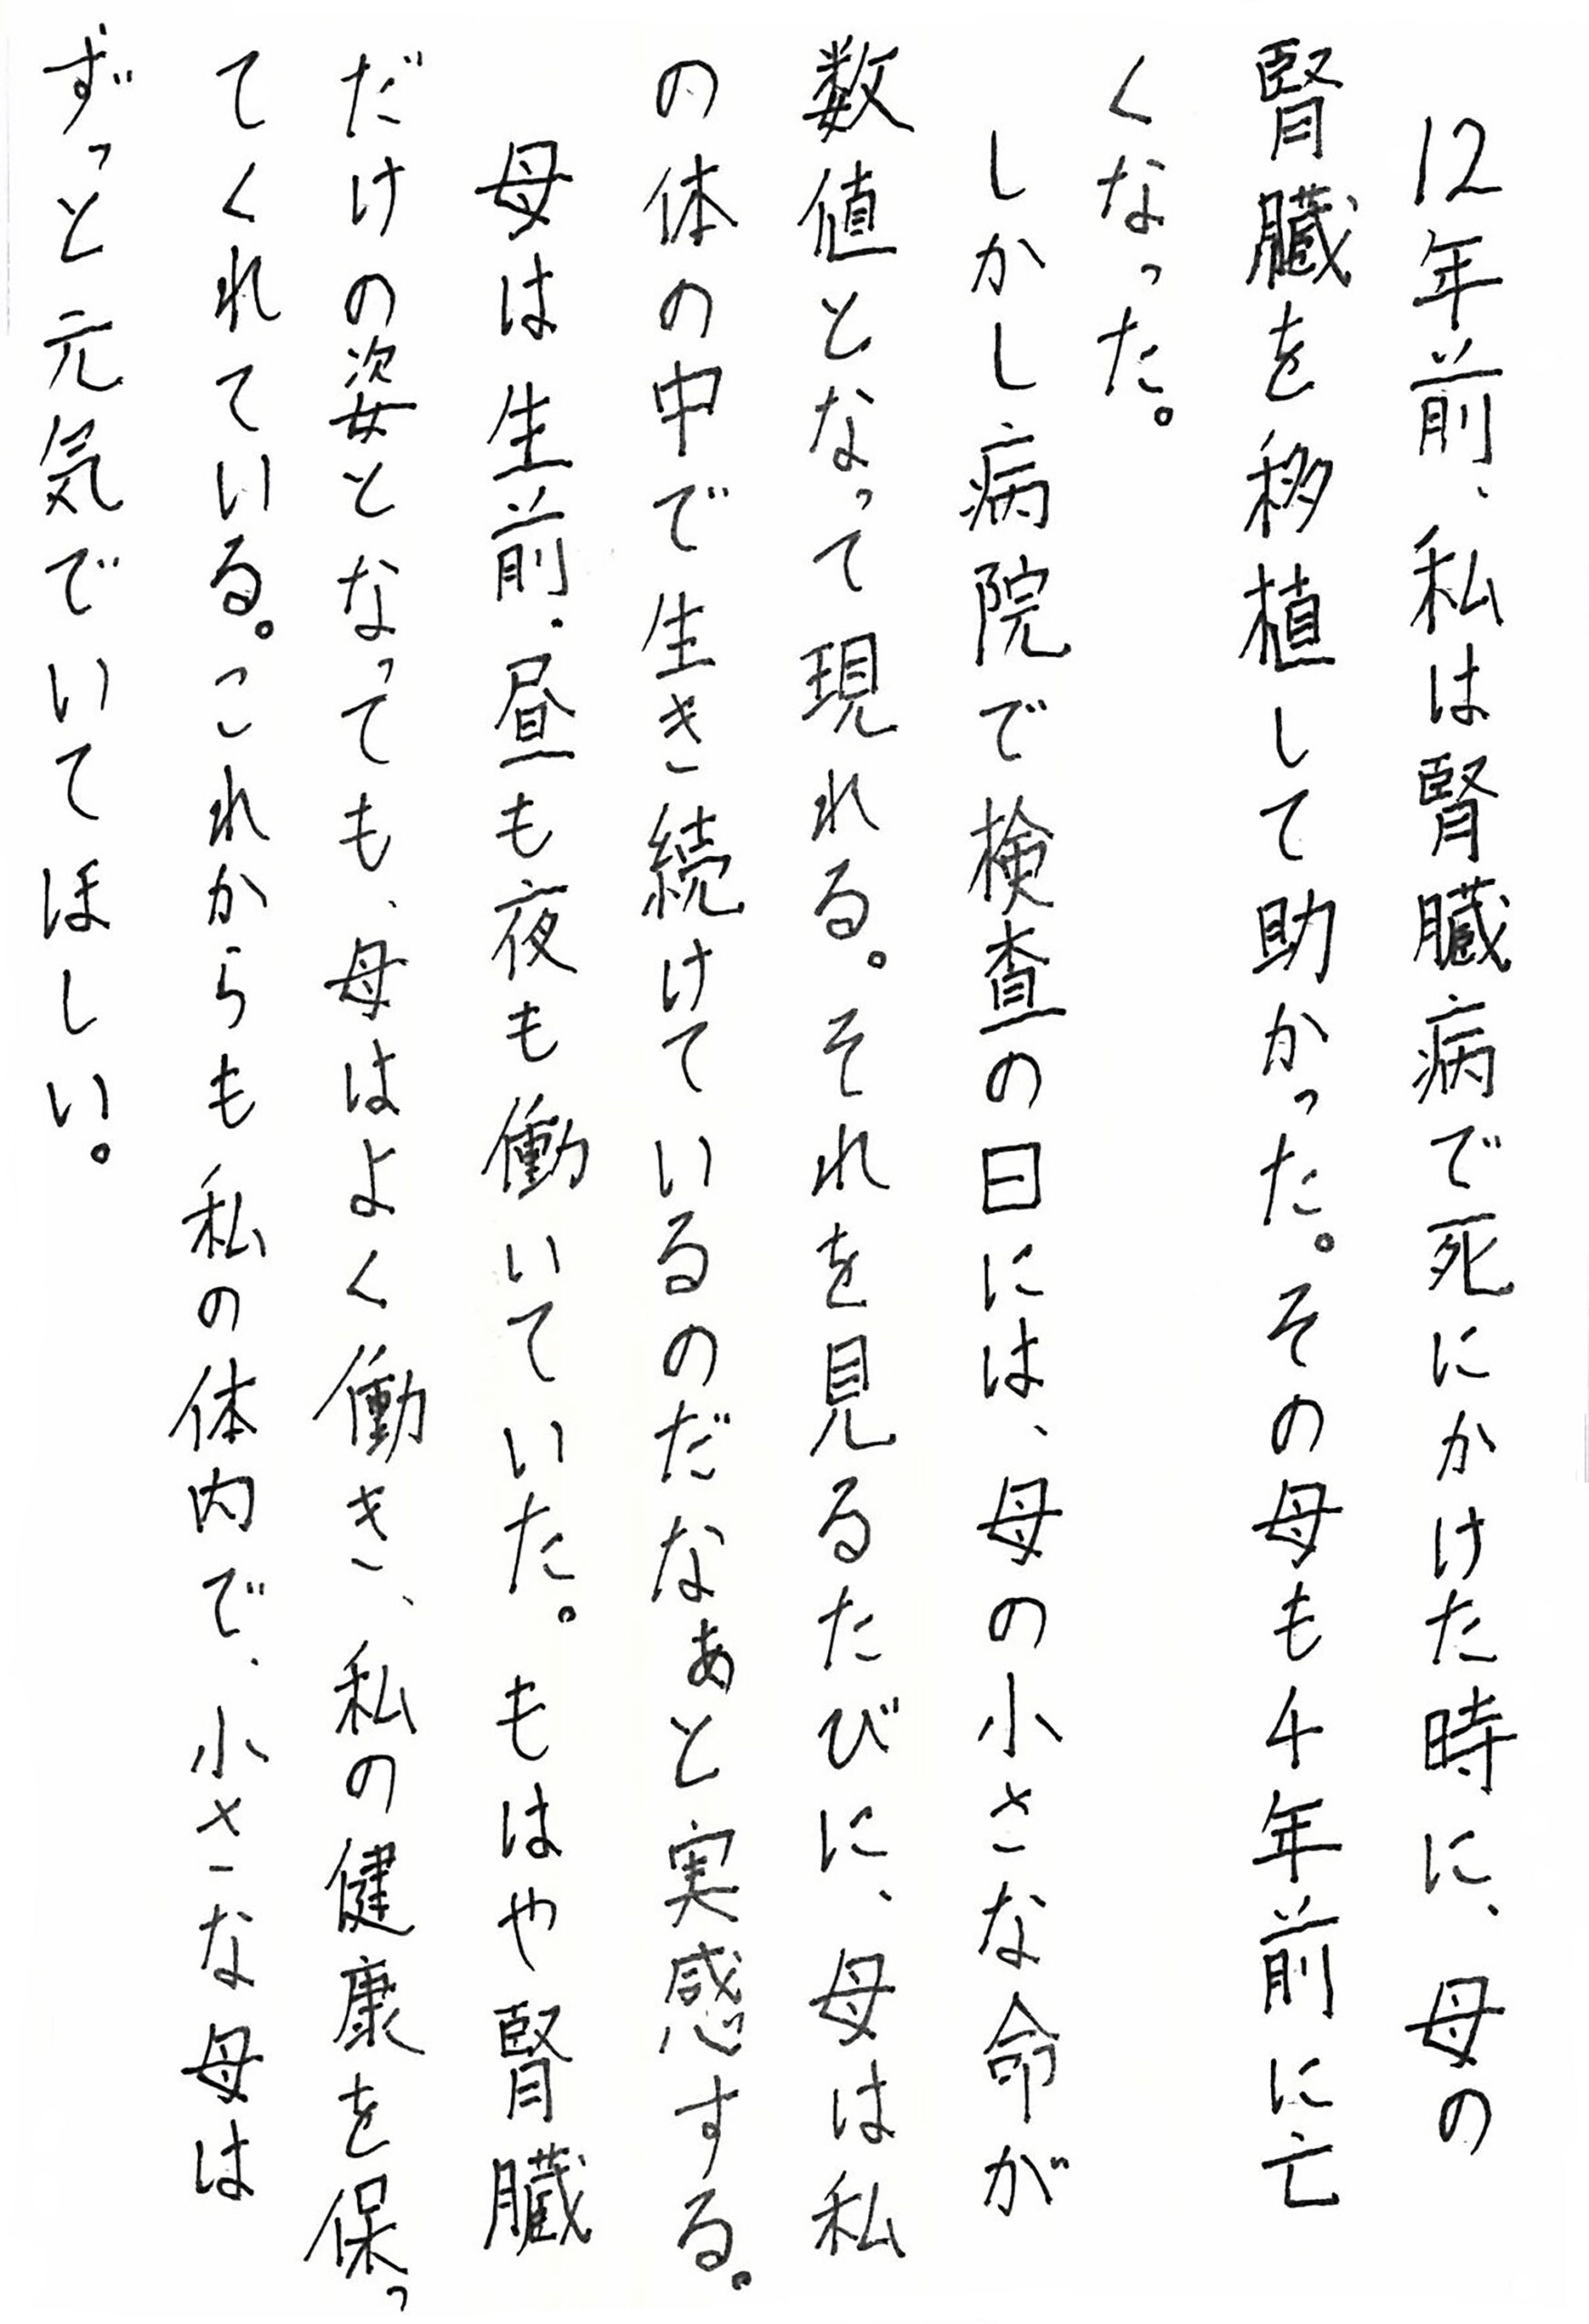 12年前、私は腎臓病で死にかけた時に、母の
腎臓を移植して助かった。その母も4年前に亡
くなった。
しかし病院で検査の日には、母の小さな命が
数値となって現れる。それを見るたびに、母は私
の体の中で生き続けているのだなぁと実感する。
母は生前、昼も夜も働いていた。もはや腎臓
だけの姿となっても、母はよく働き、私の健康を保っ
てくれている。これからも私の体内で、小さな母は
ずっと元気でいてほしい。